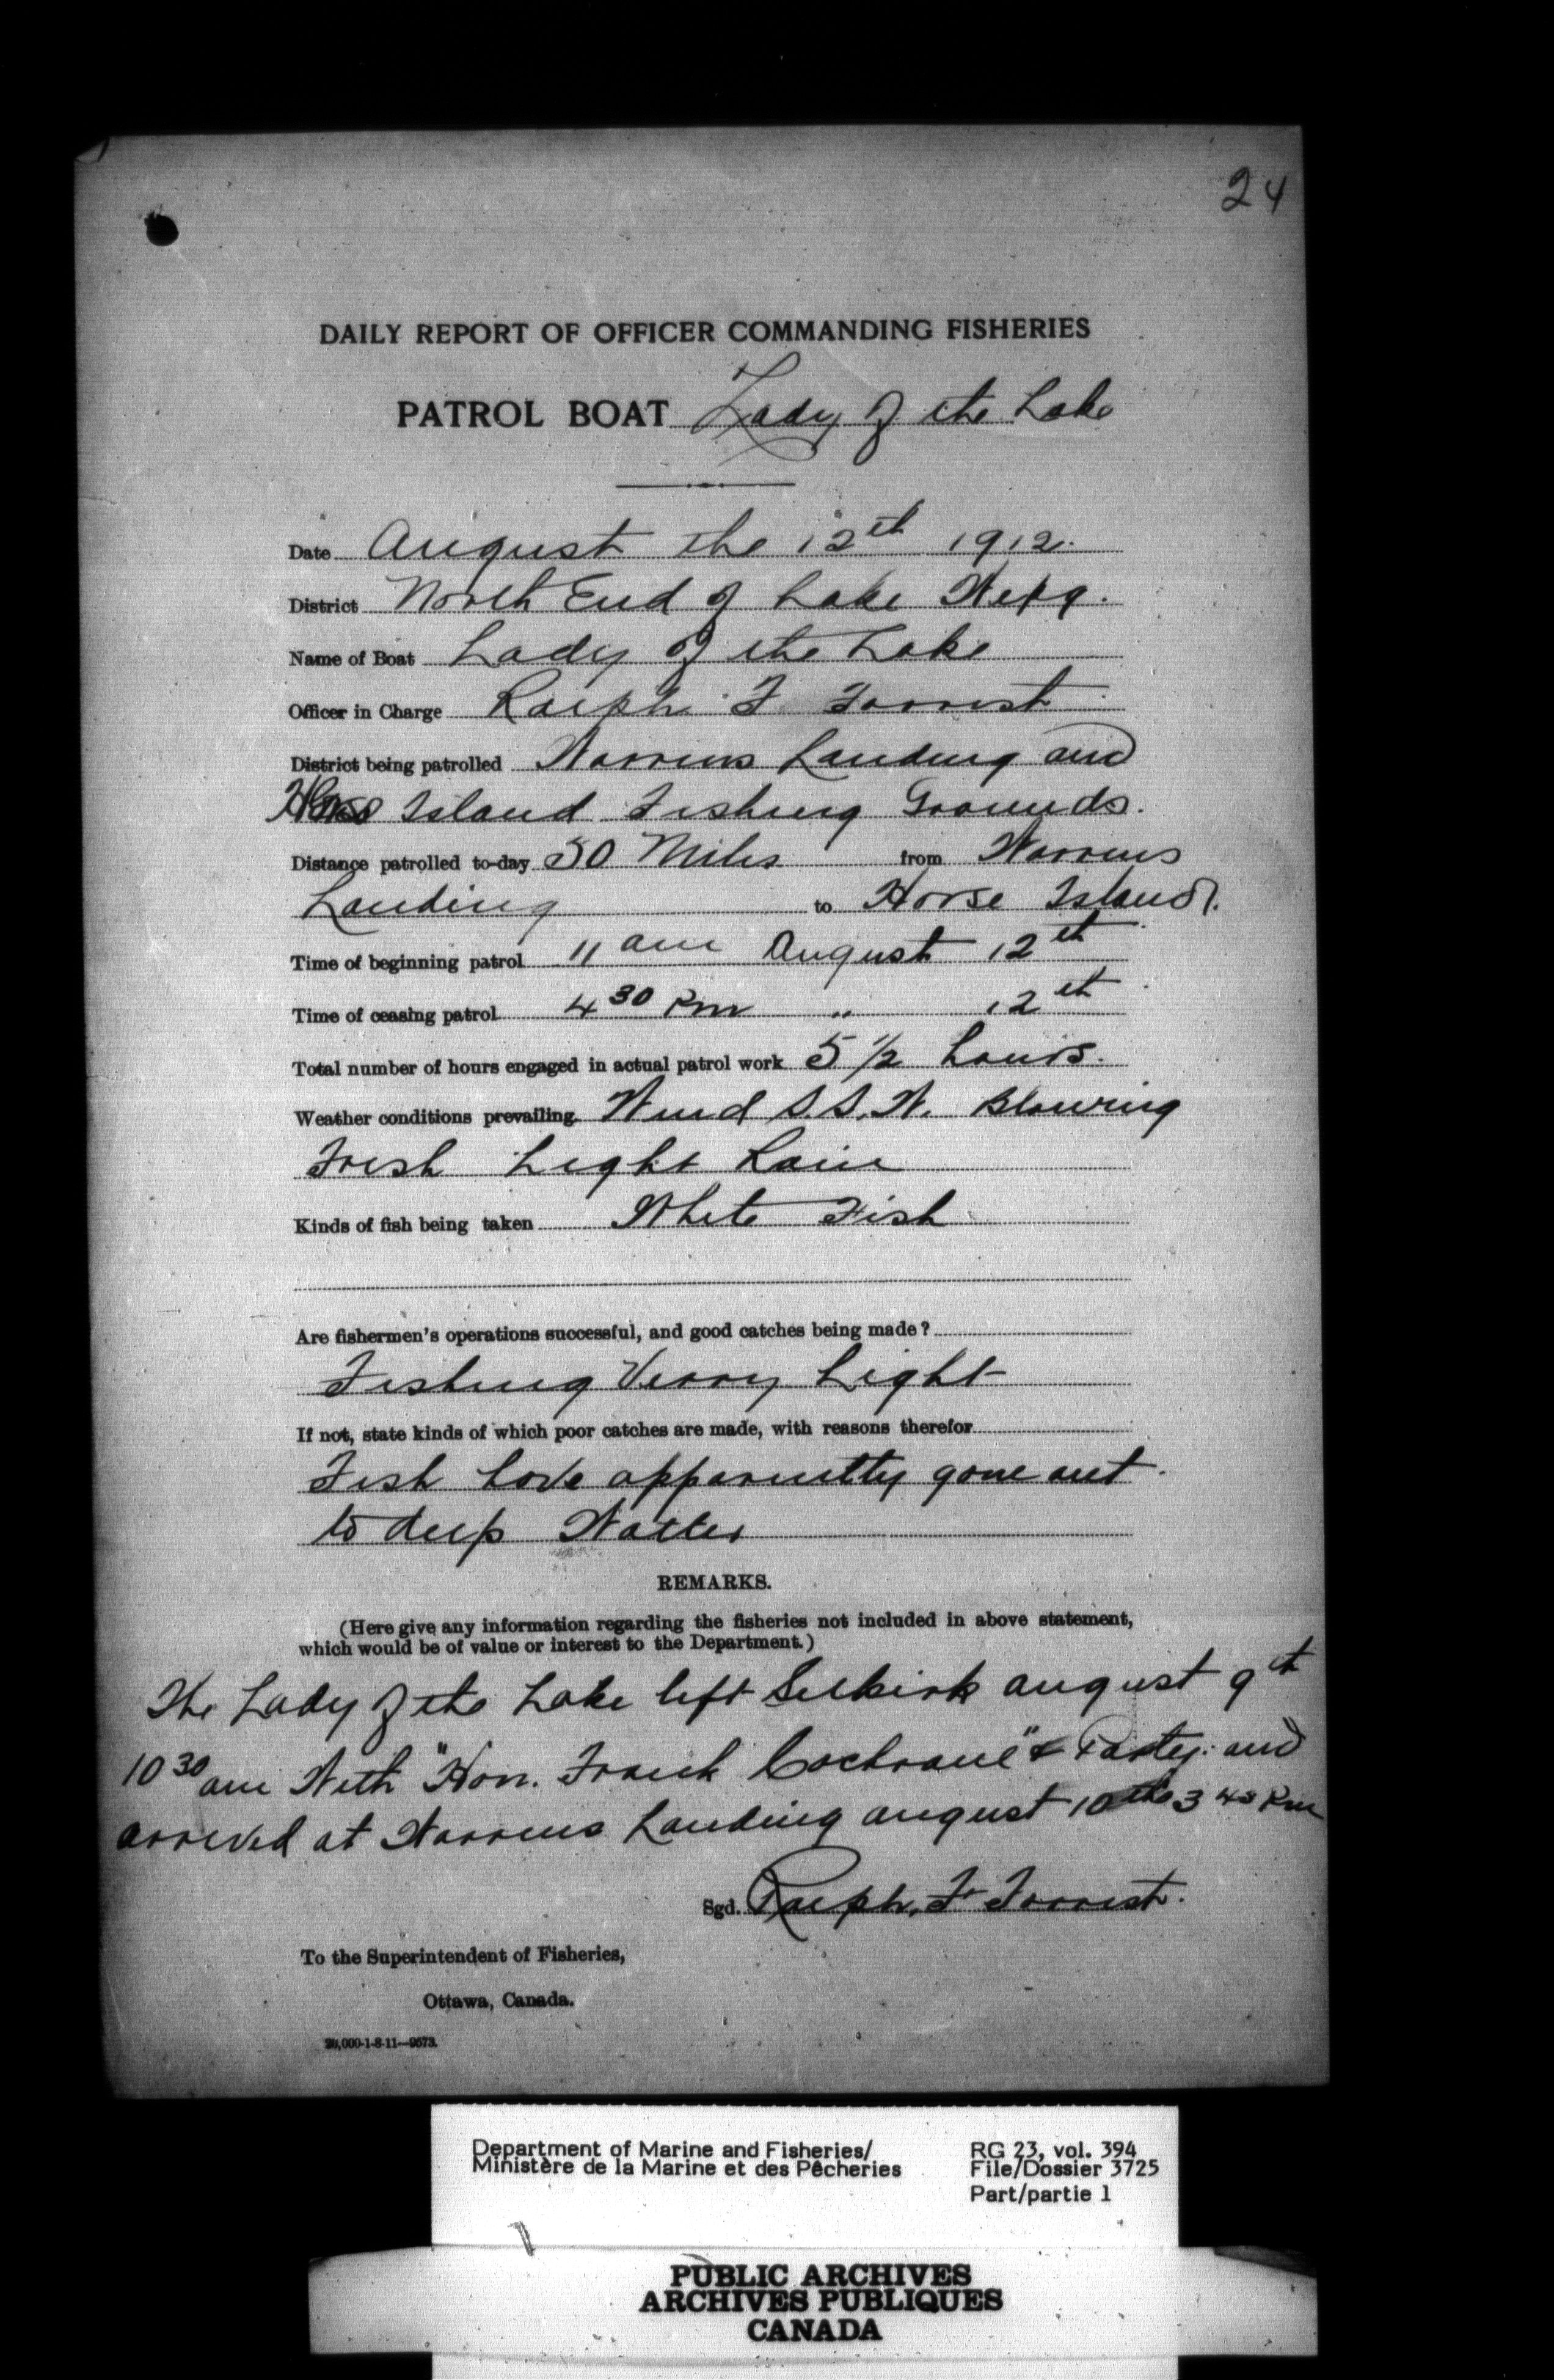 24
DAILY REPORT OF OFFICER COMMANDING FISHERIES
PATROL BOAT Lady of the Lake
Date August the 12th 1912.
District North End of Lake Wepg.
Name of Boat Lady of the Lake
Officer in Charge Ralph F Forrest
District being patrolled Warrens Landing and
Horse Island Fishing Grounds.
Distance patrolled to-day 50 Miles from Warrens
Landing to Horse Island.
Time of beginning patrol 11 am August 12th
Time of ceasing patrol 4 30 Pm " 12th
Total number of hours engaged in actual patrol work 5 1/2 hours.
Weather conditions prevailing Wind S.S.W. Blowing
Fresh Light Rain
Kinds of fish being taken White Fish
Are fishermen's operations successful, and good catches being made?
Fishing Verry Light
If not, state kinds of which poor catches are made, with reasons therefor
Fish have apparently gone out
to deep Watter
REMARKS.
(Here give any information regarding the fisheries not included in above statement,
which would be of value or interest to the Department.)
The Lady of the Lake left Selkirk august 9th
10 30 am With "Hon. Frank Cochrane" & Party. and
arrived at Warrens Landing august 10th 3 45 Pm
Sgd. Ralph. F Forrest.
To the Superintendent of Fisheries,
Ottawa, Canada.
20,000-1-8-11—9673.
Department of Marine and Fisheries/ RG 23, vol. 394
Ministère de la Marine et des Pêcheries File/Dossier 3725
Part/partie 1
PUBLIC ARCHIVES
ARCHIVES PUBLIQUES
CANADA